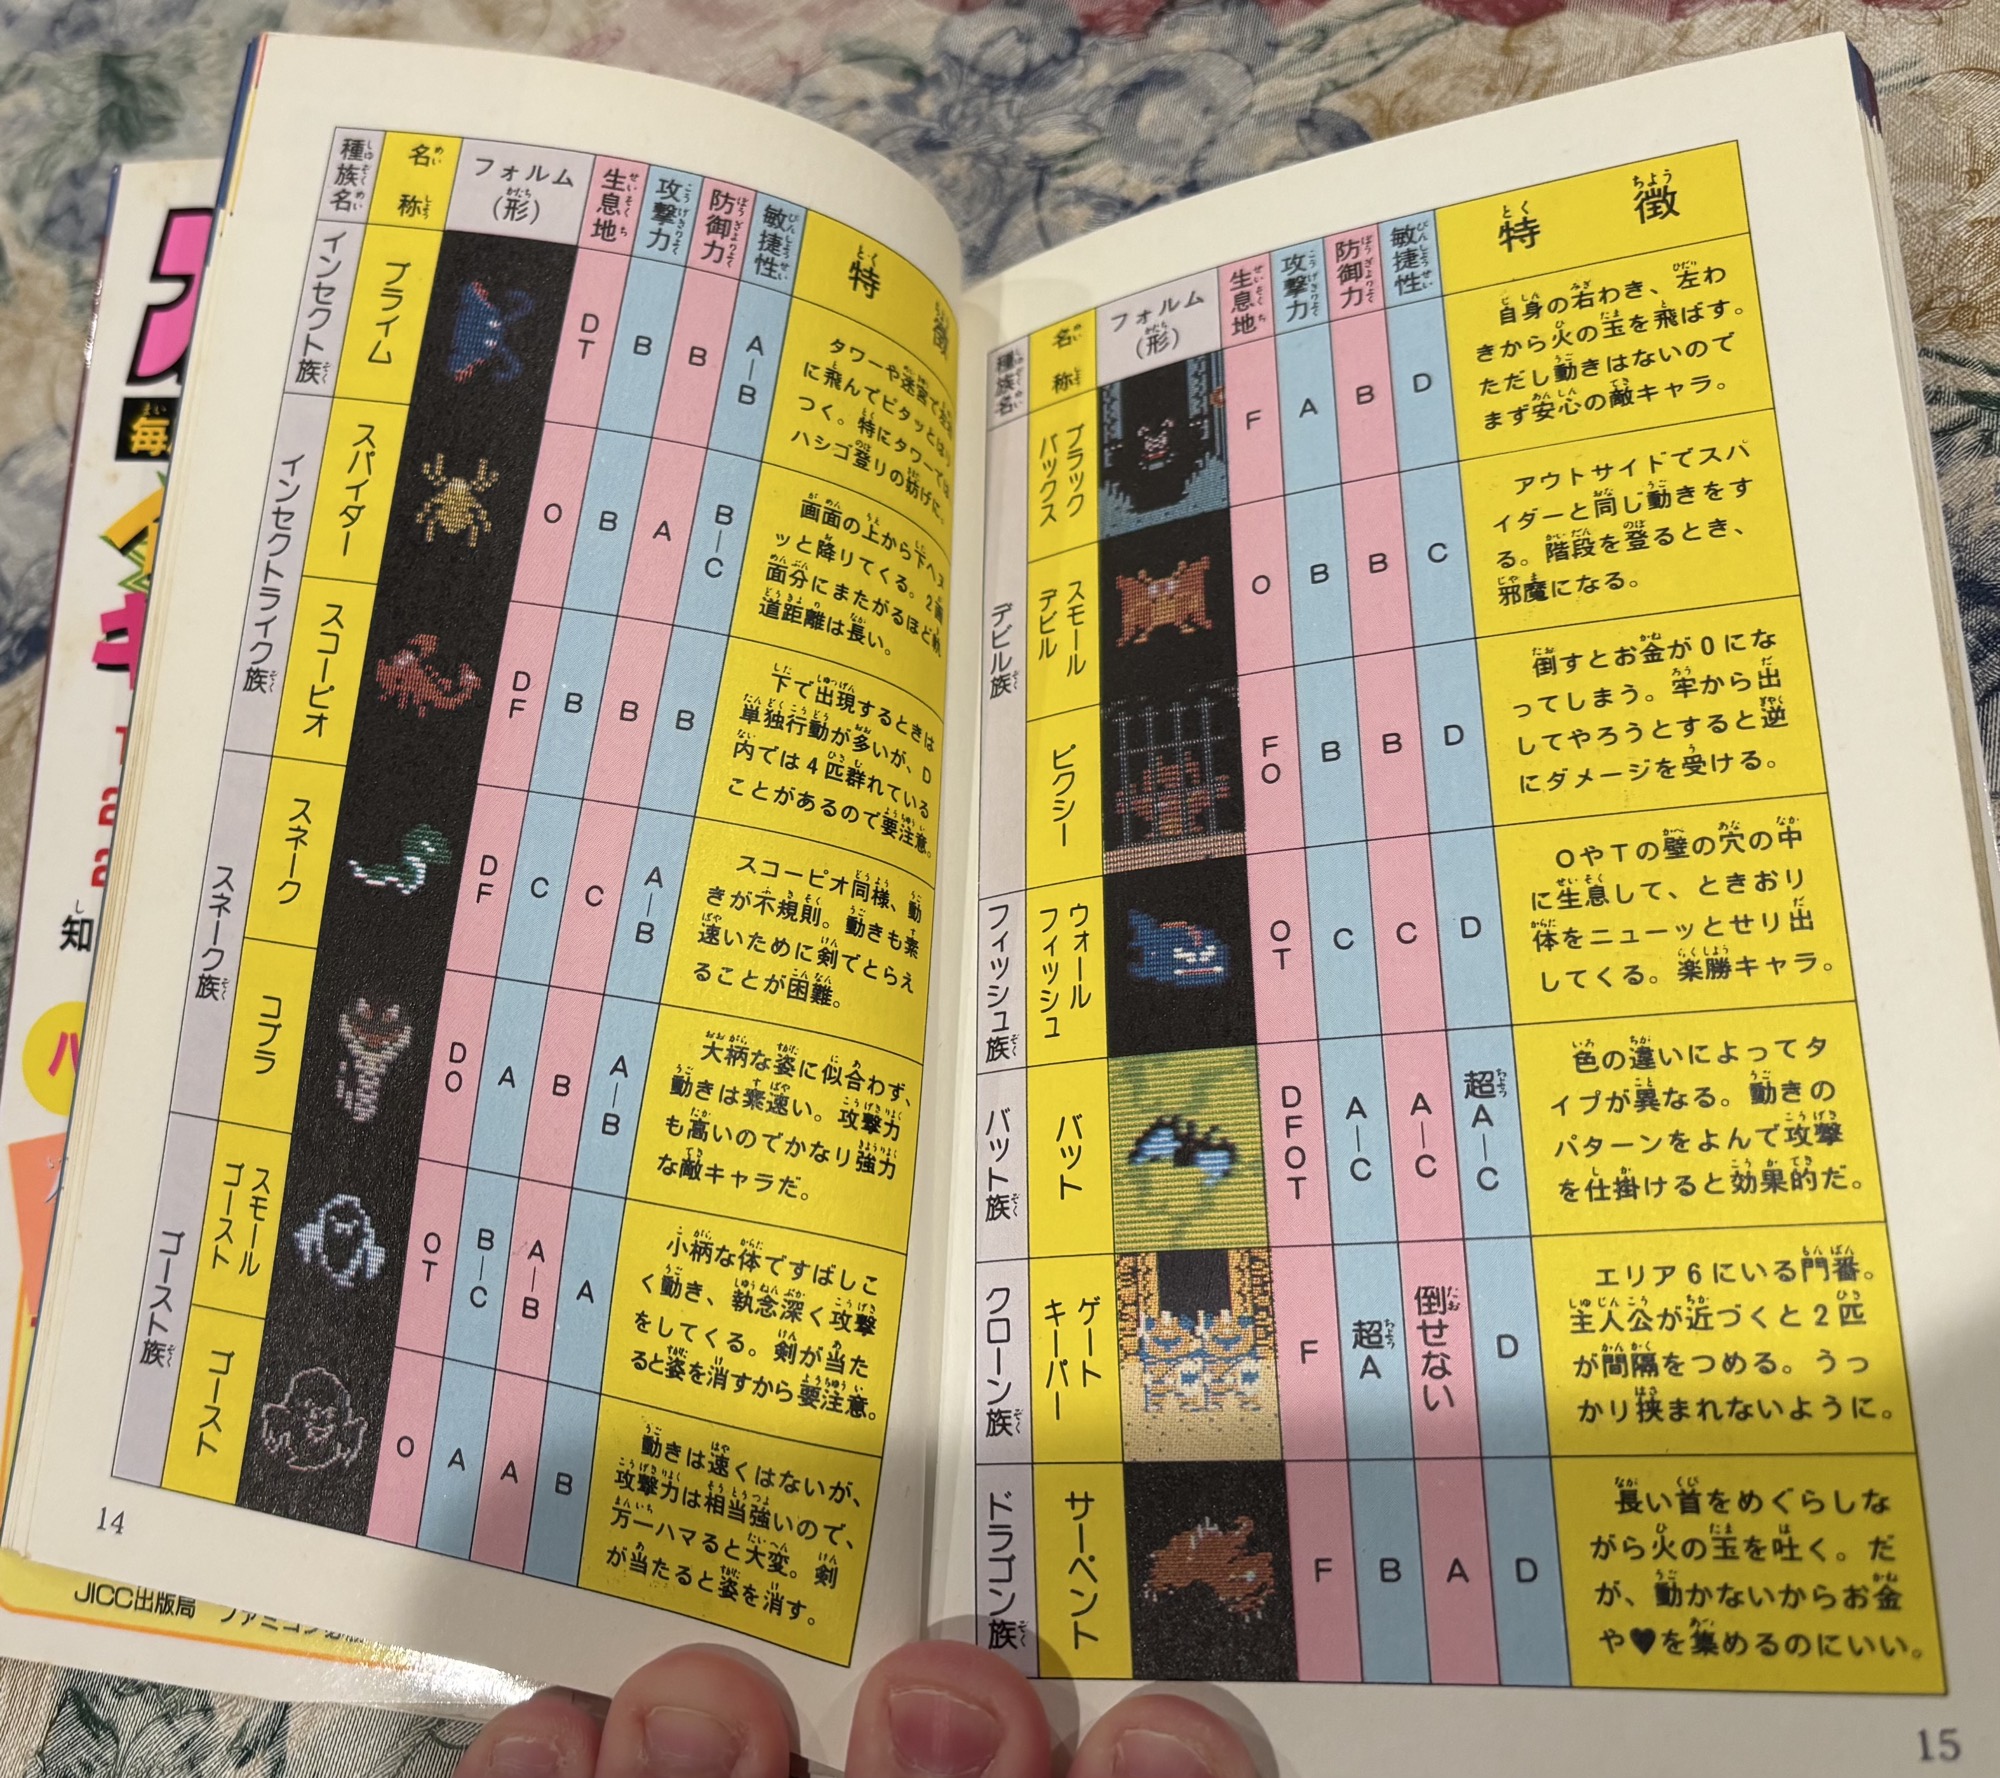 種族名
名称
フォルム(形)
生息地
攻撃力
防御力
敏捷性
特徴
インセクト族
プライム
DT
B
B
A–B
タワーや迷宮で
に飛んでピタッとは
つく。特にタワーでは
ハシゴ登りの妨げに。
インセクトライク族
スパイダー
O
B
A
B–C
画面の上から下へス
ッと降りてくる。2画
面分にまたがるほど
道距離は長い。
スコーピオ
DF
B
B
B
下で出現するときは
単独行動が多いが、D
内では4匹群れている
ことがあるので要注意。
スネーク族
スネーク
DF
C
C
A–B
スコーピオ同様、動
きが不規則。動きも素
速いために剣でとらえ
ることが困難。
コブラ
DO
A
B
A–B
大柄な姿に似合わず、
動きは素速い。攻撃力
も高いのでかなり強力
な敵キャラだ。
ゴースト族
スモールゴースト
OT
B–C
A–B
A
小柄な体ですばしこ
く動き、執念深く攻撃
をしてくる。剣が当た
ると姿を消すから要注意。
ゴースト
O
A
A
B
動きは速くはないが、
攻撃力は相当強いので、
万一ハマると大変。剣
が当たると姿を消す。
14
種族名
名称
フォルム(形)
生息地
攻撃力
防御力
敏捷性
特徴
デビル族
ブラックバックス
F
A
B
D
自身の右わき、左わ
きから火の玉を飛ばす。
ただし動きはないので
まず安心の敵キャラ。
スモールデビル
O
B
B
C
アウトサイドでスパ
イダーと同じ動きをす
る。階段を登るとき、
邪魔になる。
ピクシー
FO
B
B
D
倒すとお金が0にな
ってしまう。牢から出
してやろうとすると逆
にダメージを受ける。
フィッシュ族
ウォールフィッシュ
OT
C
C
D
OやTの壁の穴の中
に生息して、ときおり
体をニューッとせり出
してくる。楽勝キャラ。
バット族
バット
DFOT
A–C
A–C
超A–C
色の違いによってタ
イプが異なる。動きの
パターンをよんで攻撃
を仕掛けると効果的だ。
クローン族
ゲートキーパー
F
超A
倒せない
D
エリア6にいる門番。
主人公が近づくと2匹
が間隔をつめる。うっ
かり挟まれないように。
ドラゴン族
サーペント
F
B
A
D
長い首をめぐらしな
がら火の玉を吐く。だ
が、動かないからお金
や♥を集めるのにいい。
15
毎
知
JICC出版局